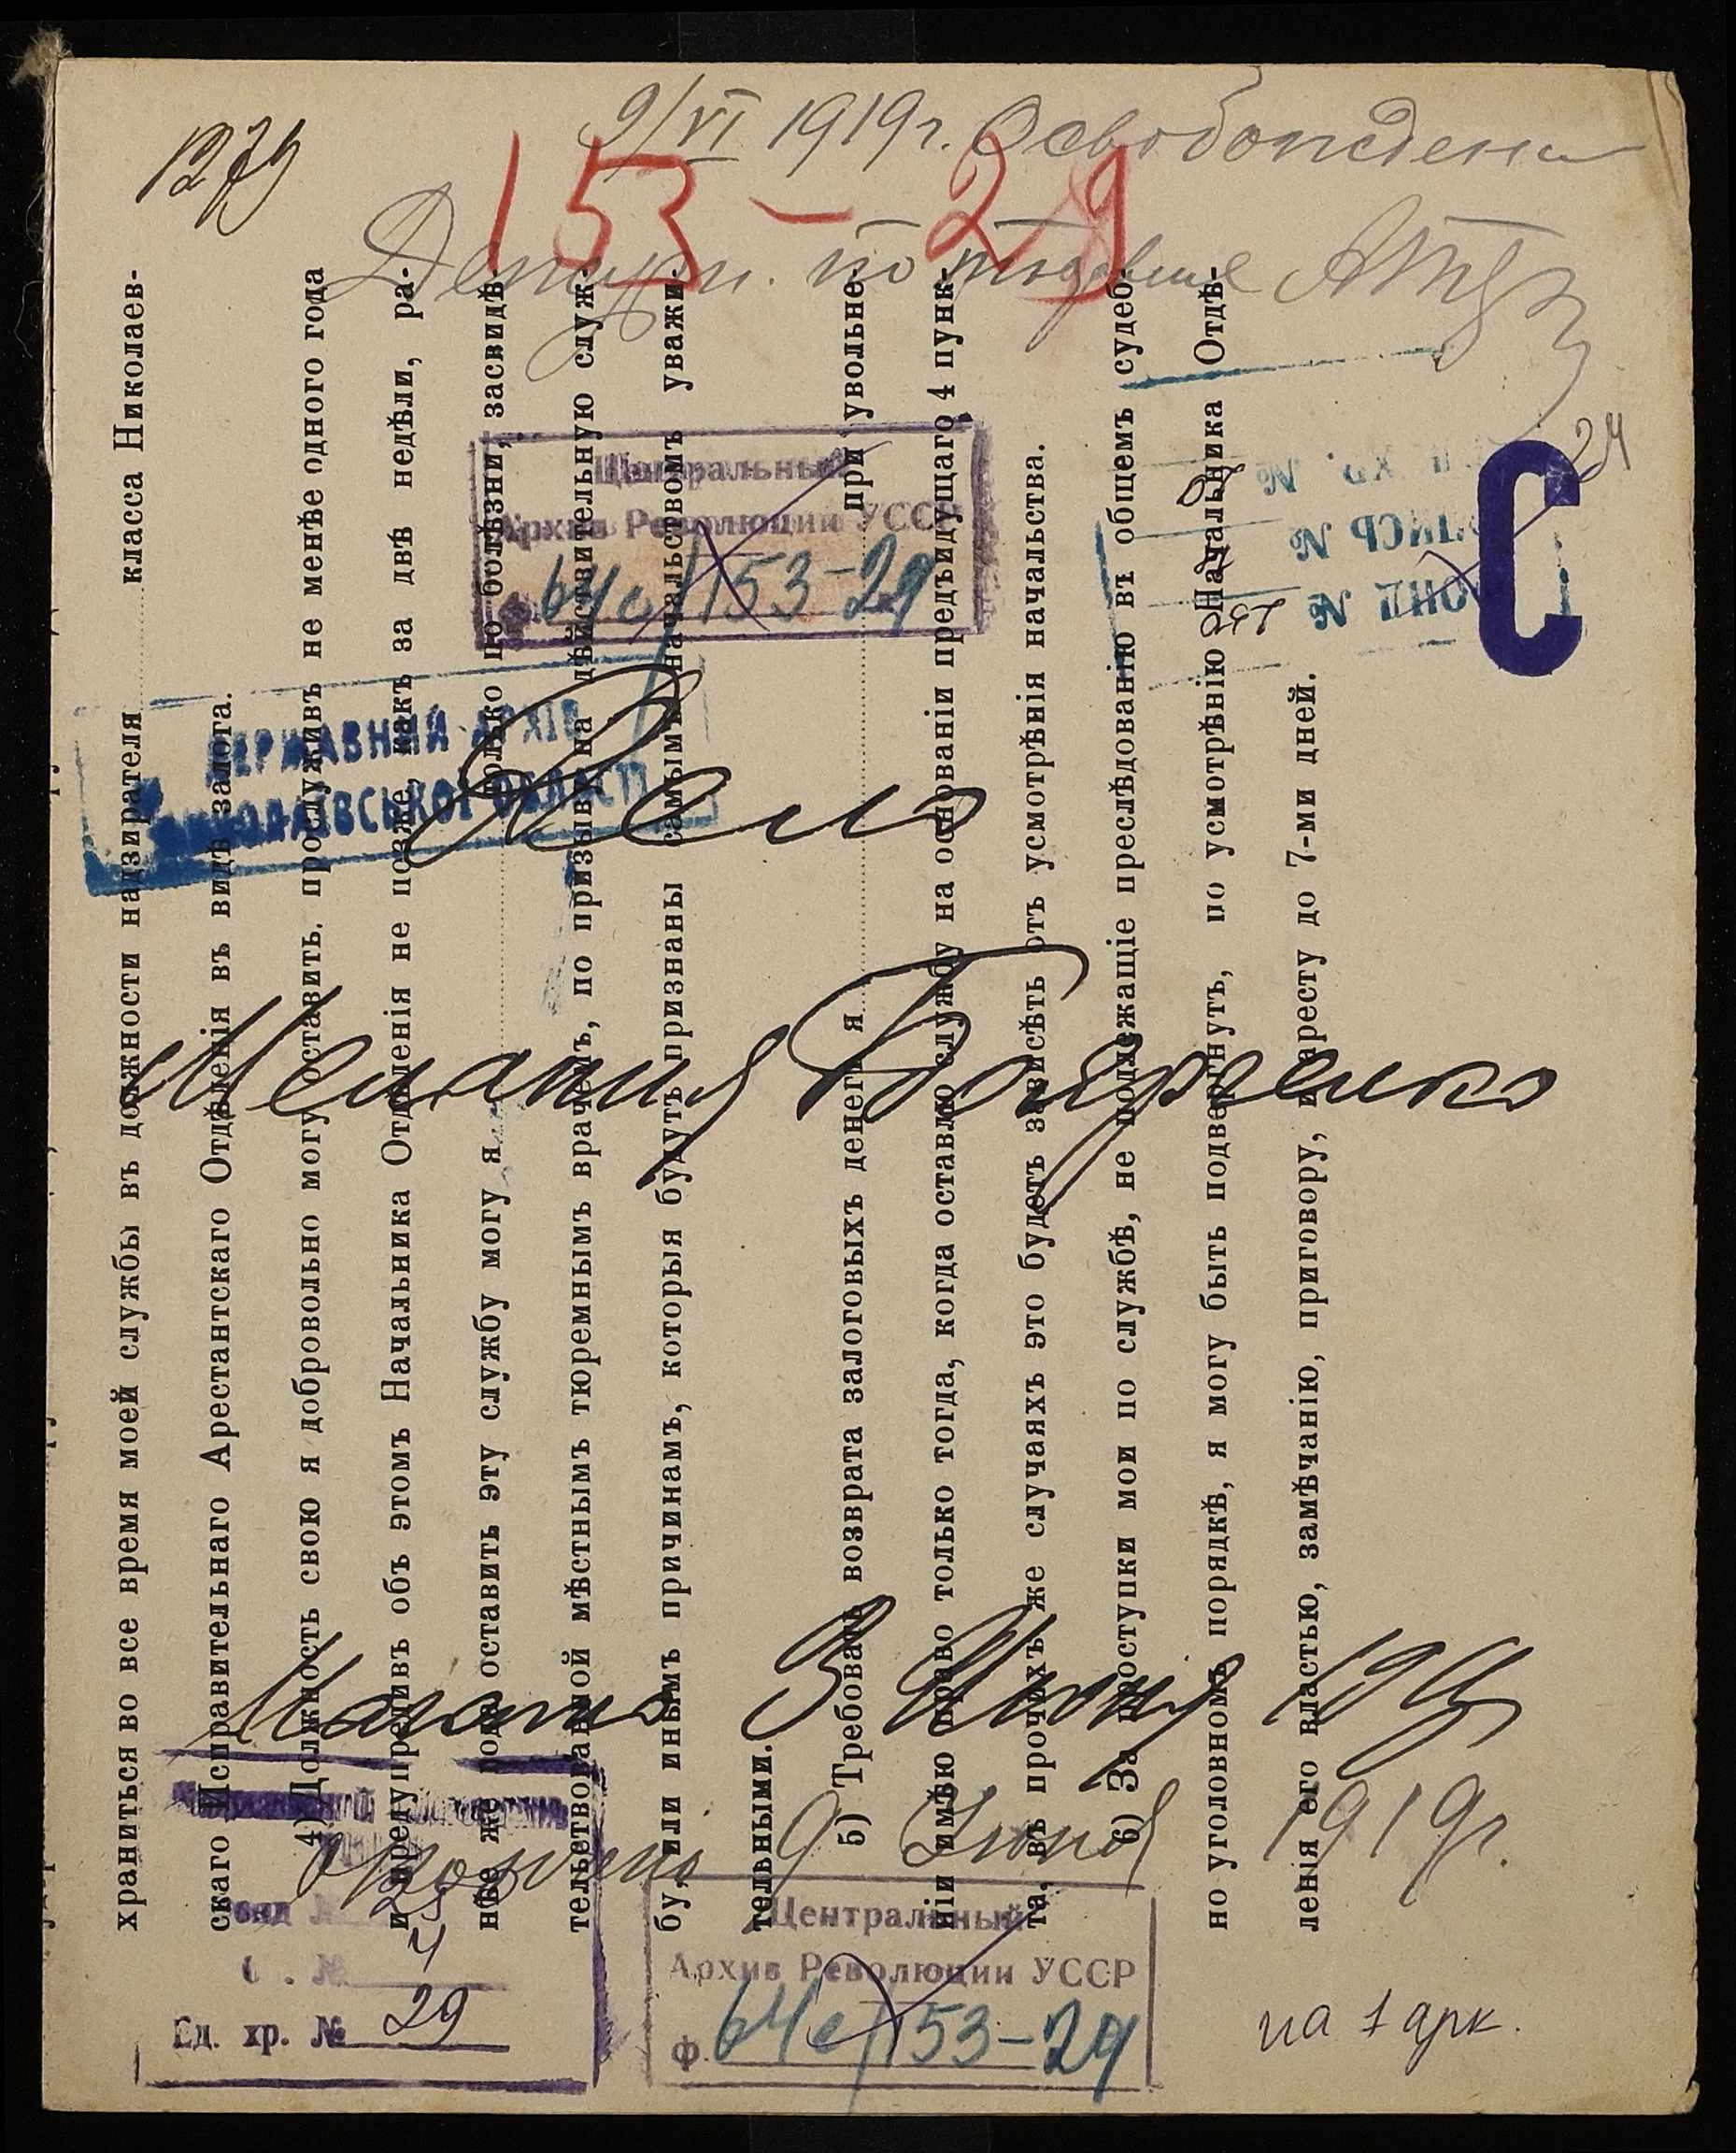 1279
9/VI 1919 г. Освобождена
153-29
Центральный
Архив Революции УССР
ф. 64с/153-29
24
С
ДЕРЖАВНИЙ АРХІВ
МИКОЛАЇВСЬКОЇ ОБЛАСТІ
Дело
Мелания
Начато 3 Июня 19
9 Июня 1919 г.
Фонд №
Ед. хр. № 29
Центральный
Архив Революции УССР
ф. 64с/153-29
на 1 арк.
храниться во все время моей службы въ должности надзирателя класса Николаев-
скаго Исправительнаго Арестантскаго Отдѣленія въ видѣ залога.
4) Должность свою я добровольно могу оставить, прослуживъ не менѣе одного года
и предупредивъ объ этомъ Начальника Отдѣленія не позже, какъ за двѣ недѣли, ра-
нѣе же оставить эту службу могу я только по болѣзни, засвидѣ-
тельствованной мѣстнымъ тюремнымъ врачемъ, по призыву на дѣйствительную служ-
бу, или инымъ причинамъ, которыя будутъ признаны самымъ начальствомъ уважи-
тельными.
5) Требовать возврата залоговыхъ денегъ я при увольне-
ніи имѣю право только тогда, когда оставлю службу на основаніи предъидущаго 4 пунк-
та, въ прочихъ же случаяхъ это будетъ зависѣть отъ усмотрѣнія начальства.
6) За проступки мои по службѣ, не подлежащіе преслѣдованію въ общемъ судеб-
но уголовномъ порядкѣ, я могу быть подвергнутъ, по усмотрѣнію Начальника Отдѣ-
ленія его властью, замѣчанію, приговору, и аресту до 7-ми дней.